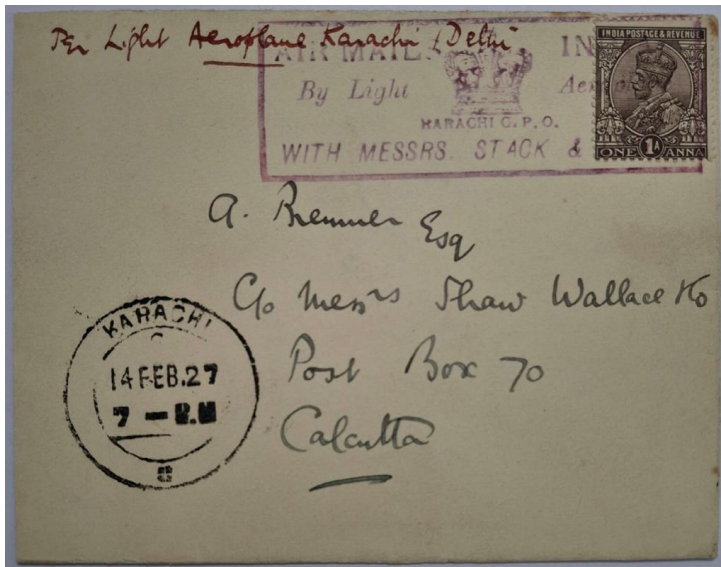 Per Light Aeroplane Karachi / Delhi
AIR MAIL IN
By Light Aer
KARACHI G.P.O.
WITH MESSRS. STACK &
INDIA POSTAGE & REVENUE
ONE 1A ANNA
A. Bremner Esq
C/o Messrs Shaw Wallace & Co
Post Box 70
Calcutta
KARACHI
14 FEB.27
7